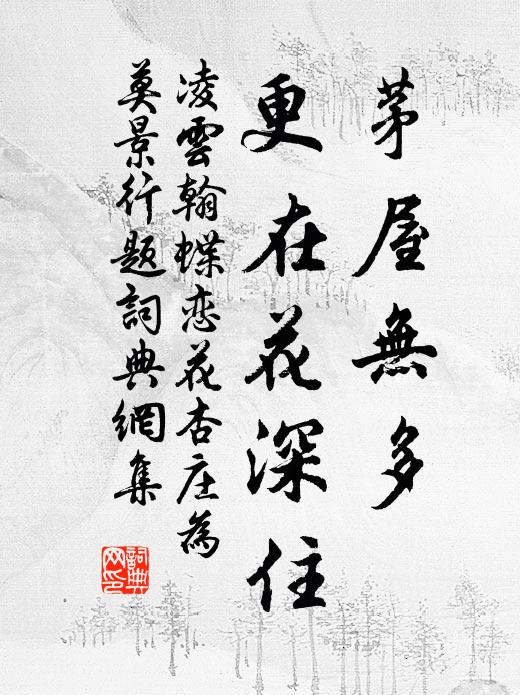 茅屋無多
更在花深住
凌雲翰蝶恋花杏庄為
莫景行題詞典網集
詞典网印